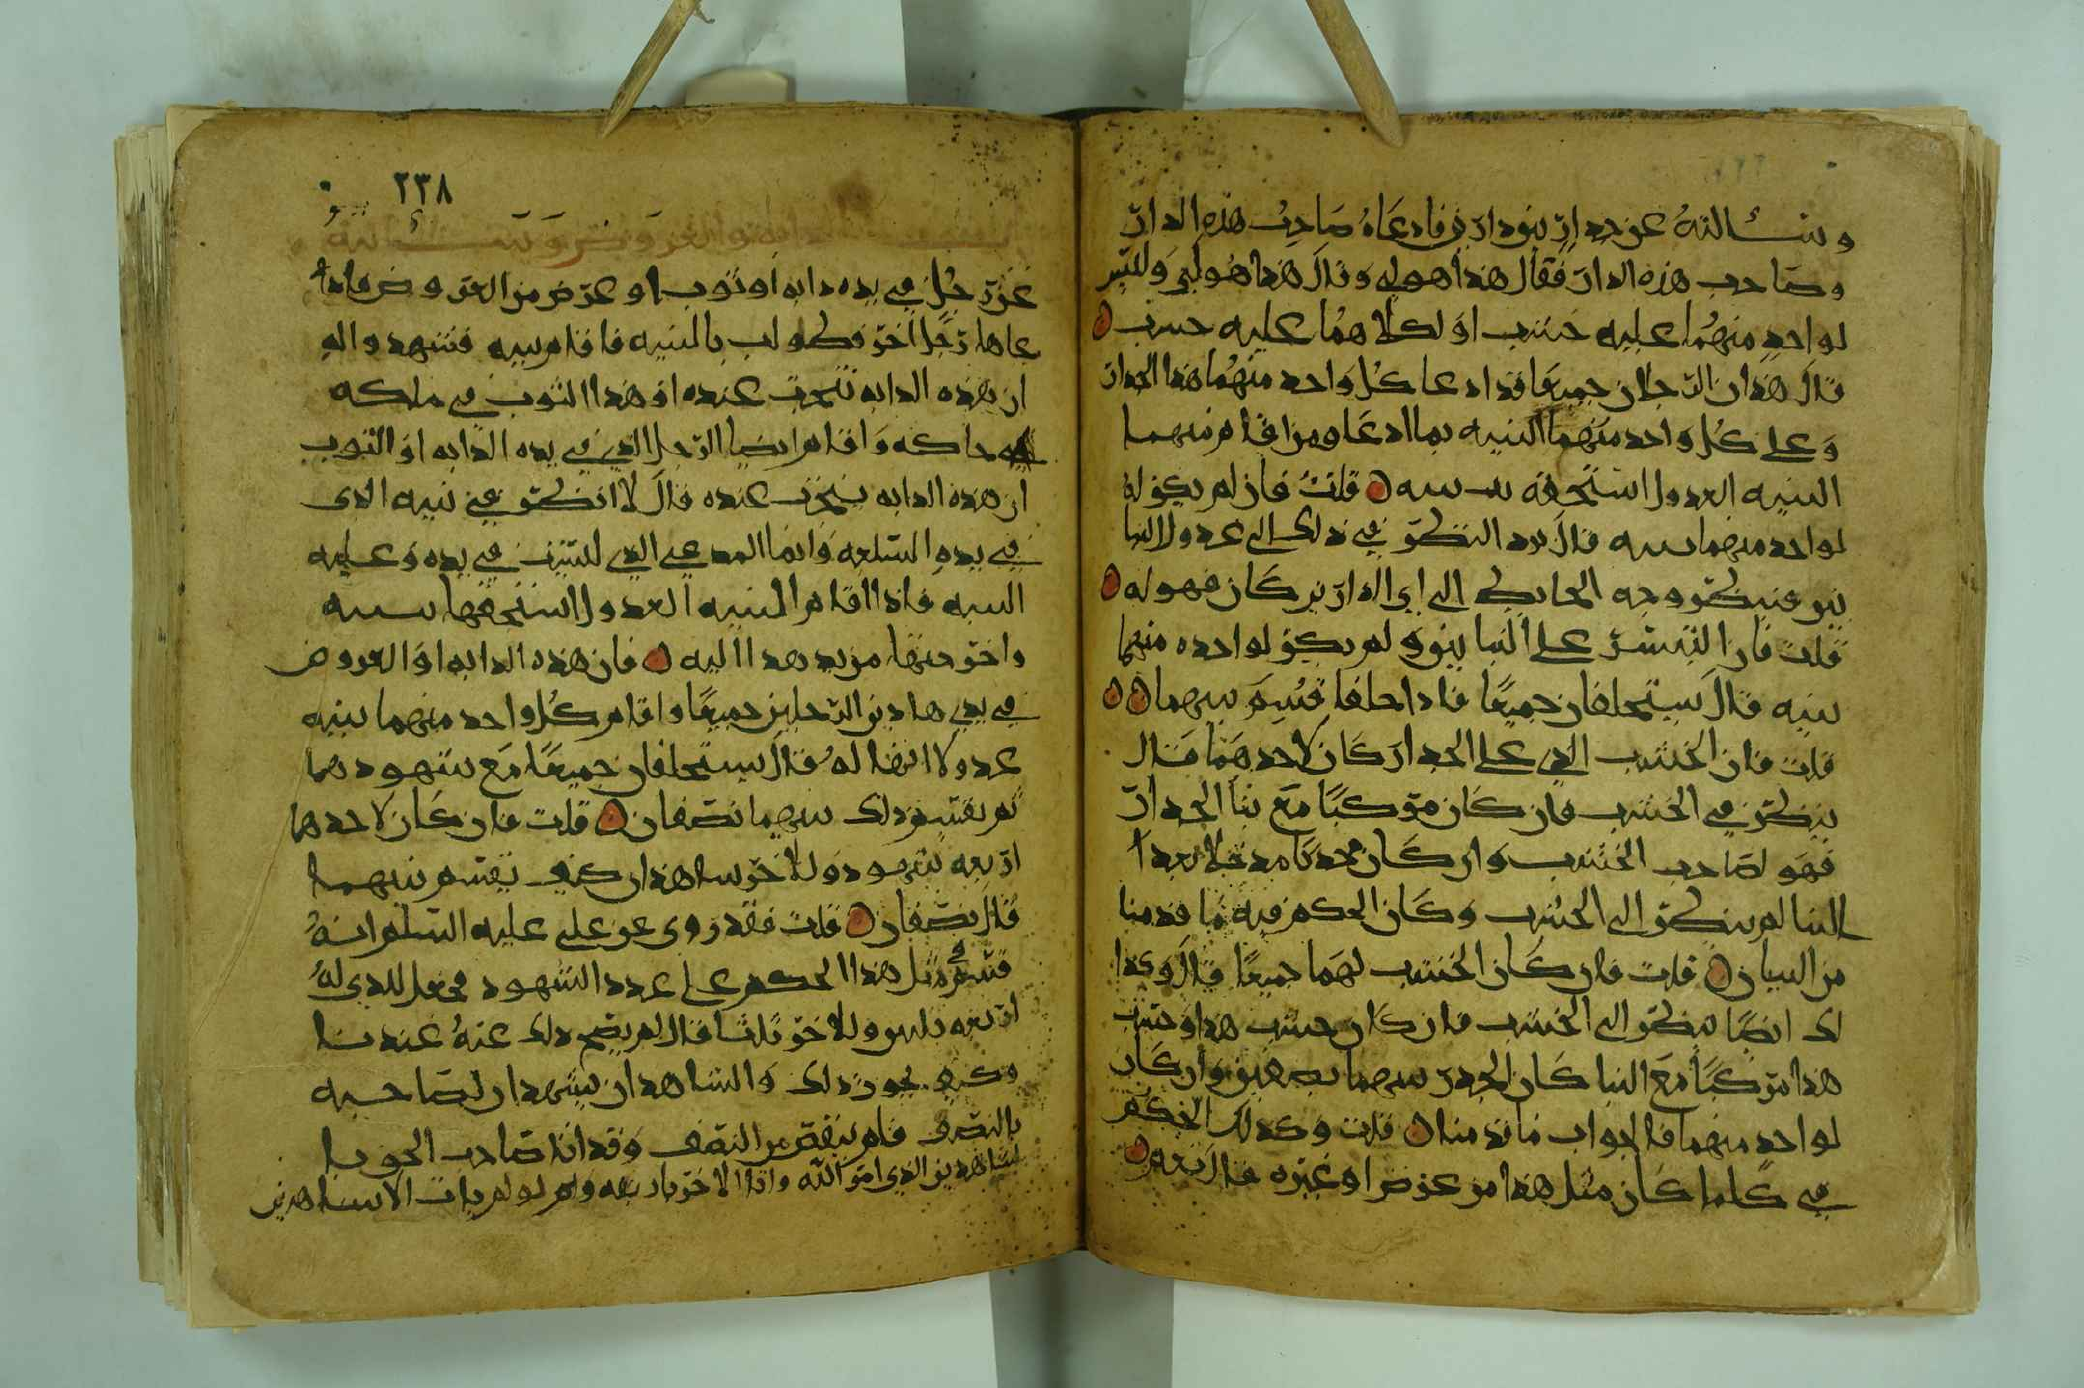 وسألته عن جدار بين دارين فادعاه صاحب هذه الدار
وصاحب هذه الدار فقال هذا هو لي وقال هذا هو لي وليس
لواحد منهما عليه خشب او لكلاهما عليه خشب
قال هذان الرجلان جميعا قد ادعا كل واحد منهما هذا الجدار
وعلى كل واحد منهما البينه بما ادعا ومن اقام منهما
البينه العدول استحقه ببينته قلت فان لم يكن له
لواحد منهما بينه قال يرد النظر في ذلك الى عدول البنا
ين فينظر وجه الحايط الى اي الدارين كان فهو له
قلت فان التبس على البنايين ولم يكن لواحده منهما
بينه قال يستحلفان جميعا فاذا حلفا قسم بينهما
قلت فان الخشب الذي على الجدار كان لاحدهما قال
ينظر في الخشب فان كان مركبا مع بنا الجدار
فهو لصاحب الخشب وان كان محدثا مدخلا بعد
البنا لم ينظر الى الخشب وكان الحكم فيه ما قدمنا
من البيان قلت فان كان الخشب لهما جميعا قال وكذا
لك ايضا ينظر الى الخشب فان كان خشب هذا وخشب
هذا مركبا مع البنا كان الجدر بينهما نصفين وان كان
لواحد منهما فالجواب ما قدمنا قلت وكذلك الحكم
في كلما كان مثل هذا من عرض او غيره قال نعم
٢٣٨
الدابه والعروض وسألته
عن رجل في يده دابه او ثوب او عرض من العروض فاد
عاها رجل اخر فطولب بالبينه فاقام بينه فشهدوا له
ان هذه الدابه نتجت عنده او هذا الثوب في ملكه
حاكه واقام ايضا الرجل الذي في يده الدابه او الثوب
ان هذه الدابه نتجت عنده قال لا انظر في بينه الذي
في يده السلعه وانما المدعي الذي ليس في يده وعليه
البينه فاذا اقام البينه العدول استحقها ببينته
واخرجتها من يد هذا اليه فان هذه الدابه او العروض
في يدي هاذين الرجلين جميعا واقام كل واحد منهما بينه
عدولا انها له قال يستحلفان جميعا مع شهودهما
ثم يقسم ذلك بينهما نصفان قلت فان كان لاحدهما
اربعه شهود وللاخر شاهدان كيف يقسم بينهما
قال نصفان قلت فقد روي عن علي عليه السلم انه
قسم في مثل هذا الحكم على عدد الشهود فجعل للذي له
اربعه ثلثين وللاخر ثلثا قال لم يصح ذلك عنه عندنا
وكيف يجوز ذلك والشاهدان يشهدان لصاحبه
بالنصف فلم ينقص من النصف وقد اتا صاحب الحق با
لشاهدين الذي امر الله واتا الاخر باربعه ولو لم يات الا بشاهدين